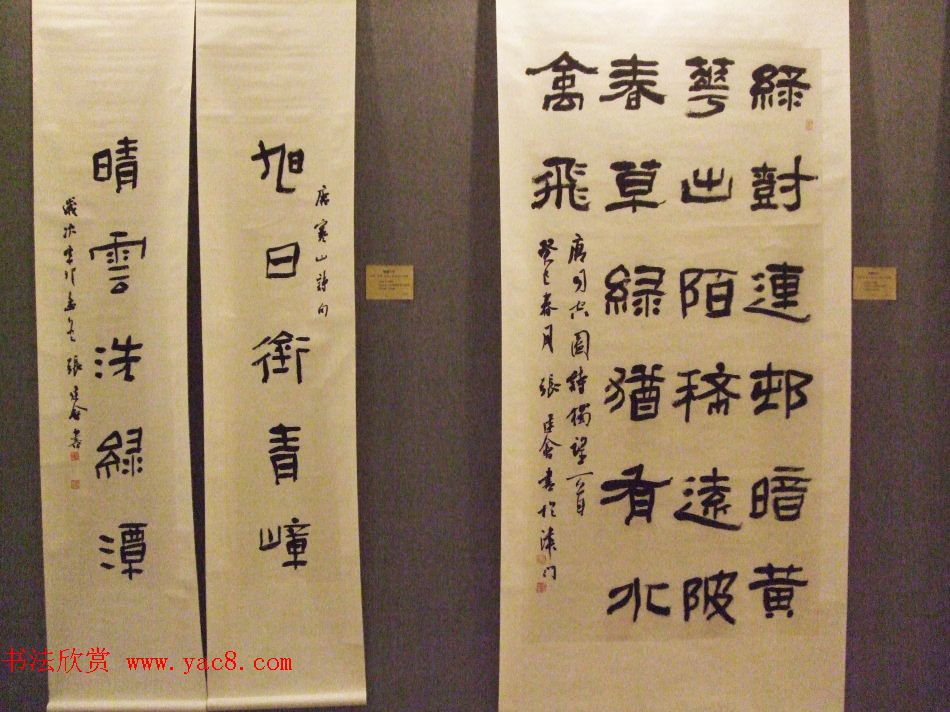 綠對連邨暗黃
華出陌稀遠陂
春草綠猶有水
禽飛
唐司空圖詩獨望一首
癸巳春月 張建會書於津門
唐寒山詩句
旭日銜青嶂
晴雲洗綠潭
歲次 張建會書
书法欣赏 www.yac8.com